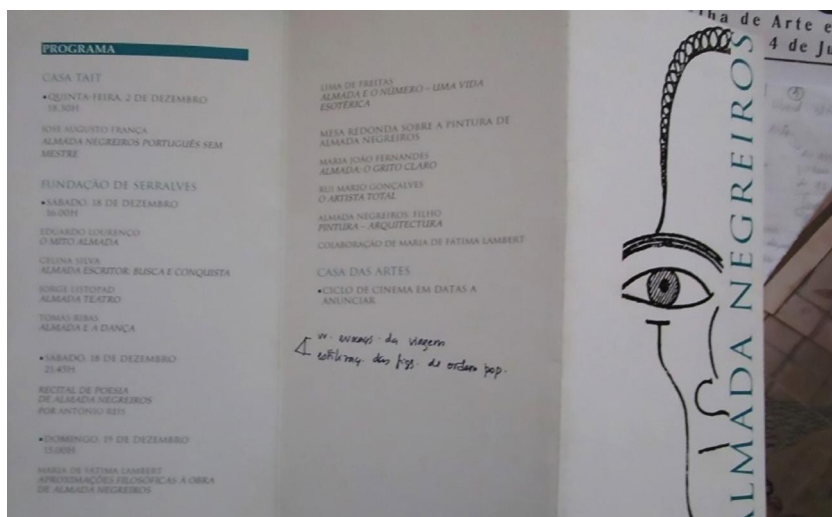 PROGRAMA
CASA TAIT
•QUINTA-FEIRA, 2 DE DEZEMBRO
18.30H
JOSÉ AUGUSTO FRANÇA
ALMADA NEGREIROS PORTUGUÊS SEM
MESTRE
FUNDAÇÃO DE SERRALVES
•SÁBADO, 18 DE DEZEMBRO
16.00H
EDUARDO LOURENÇO
O MITO ALMADA
CELINA SILVA
ALMADA ESCRITOR: BUSCA E CONQUISTA
JORGE LISTOPAD
ALMADA TEATRO
TOMÁS RIBAS
ALMADA E A DANÇA
•SÁBADO, 18 DE DEZEMBRO
21.45H
RECITAL DE POESIA
DE ALMADA NEGREIROS
POR ANTÓNIO
•DOMINGO, 19 DE DEZEMBRO
15.00H
MARIA DE FÁTIMA LAMBERT
APROXIMAÇÕES FILOSÓFICAS À OBRA
DE ALMADA NEGREIROS
LIMA DE FREITAS
ALMADA E O NÚMERO – UMA VIDA
ESOTÉRICA
MESA REDONDA SOBRE A PINTURA DE
ALMADA NEGREIROS
MARIA JOÃO FERNANDES
ALMADA: O GRITO CLARO
RUI MÁRIO GONÇALVES
O ARTISTA TOTAL
ALMADA NEGREIROS, FILHO
PINTURA – ARQUITECTURA
COLABORAÇÃO DE MARIA DE FÁTIMA LAMBERT
CASA DAS ARTES
•CICLO DE CINEMA EM DATAS A
ANUNCIAR
da viagem
das figs. de ordem pop.
ALMADA NEGREIROS
de Arte e
4 de Ju